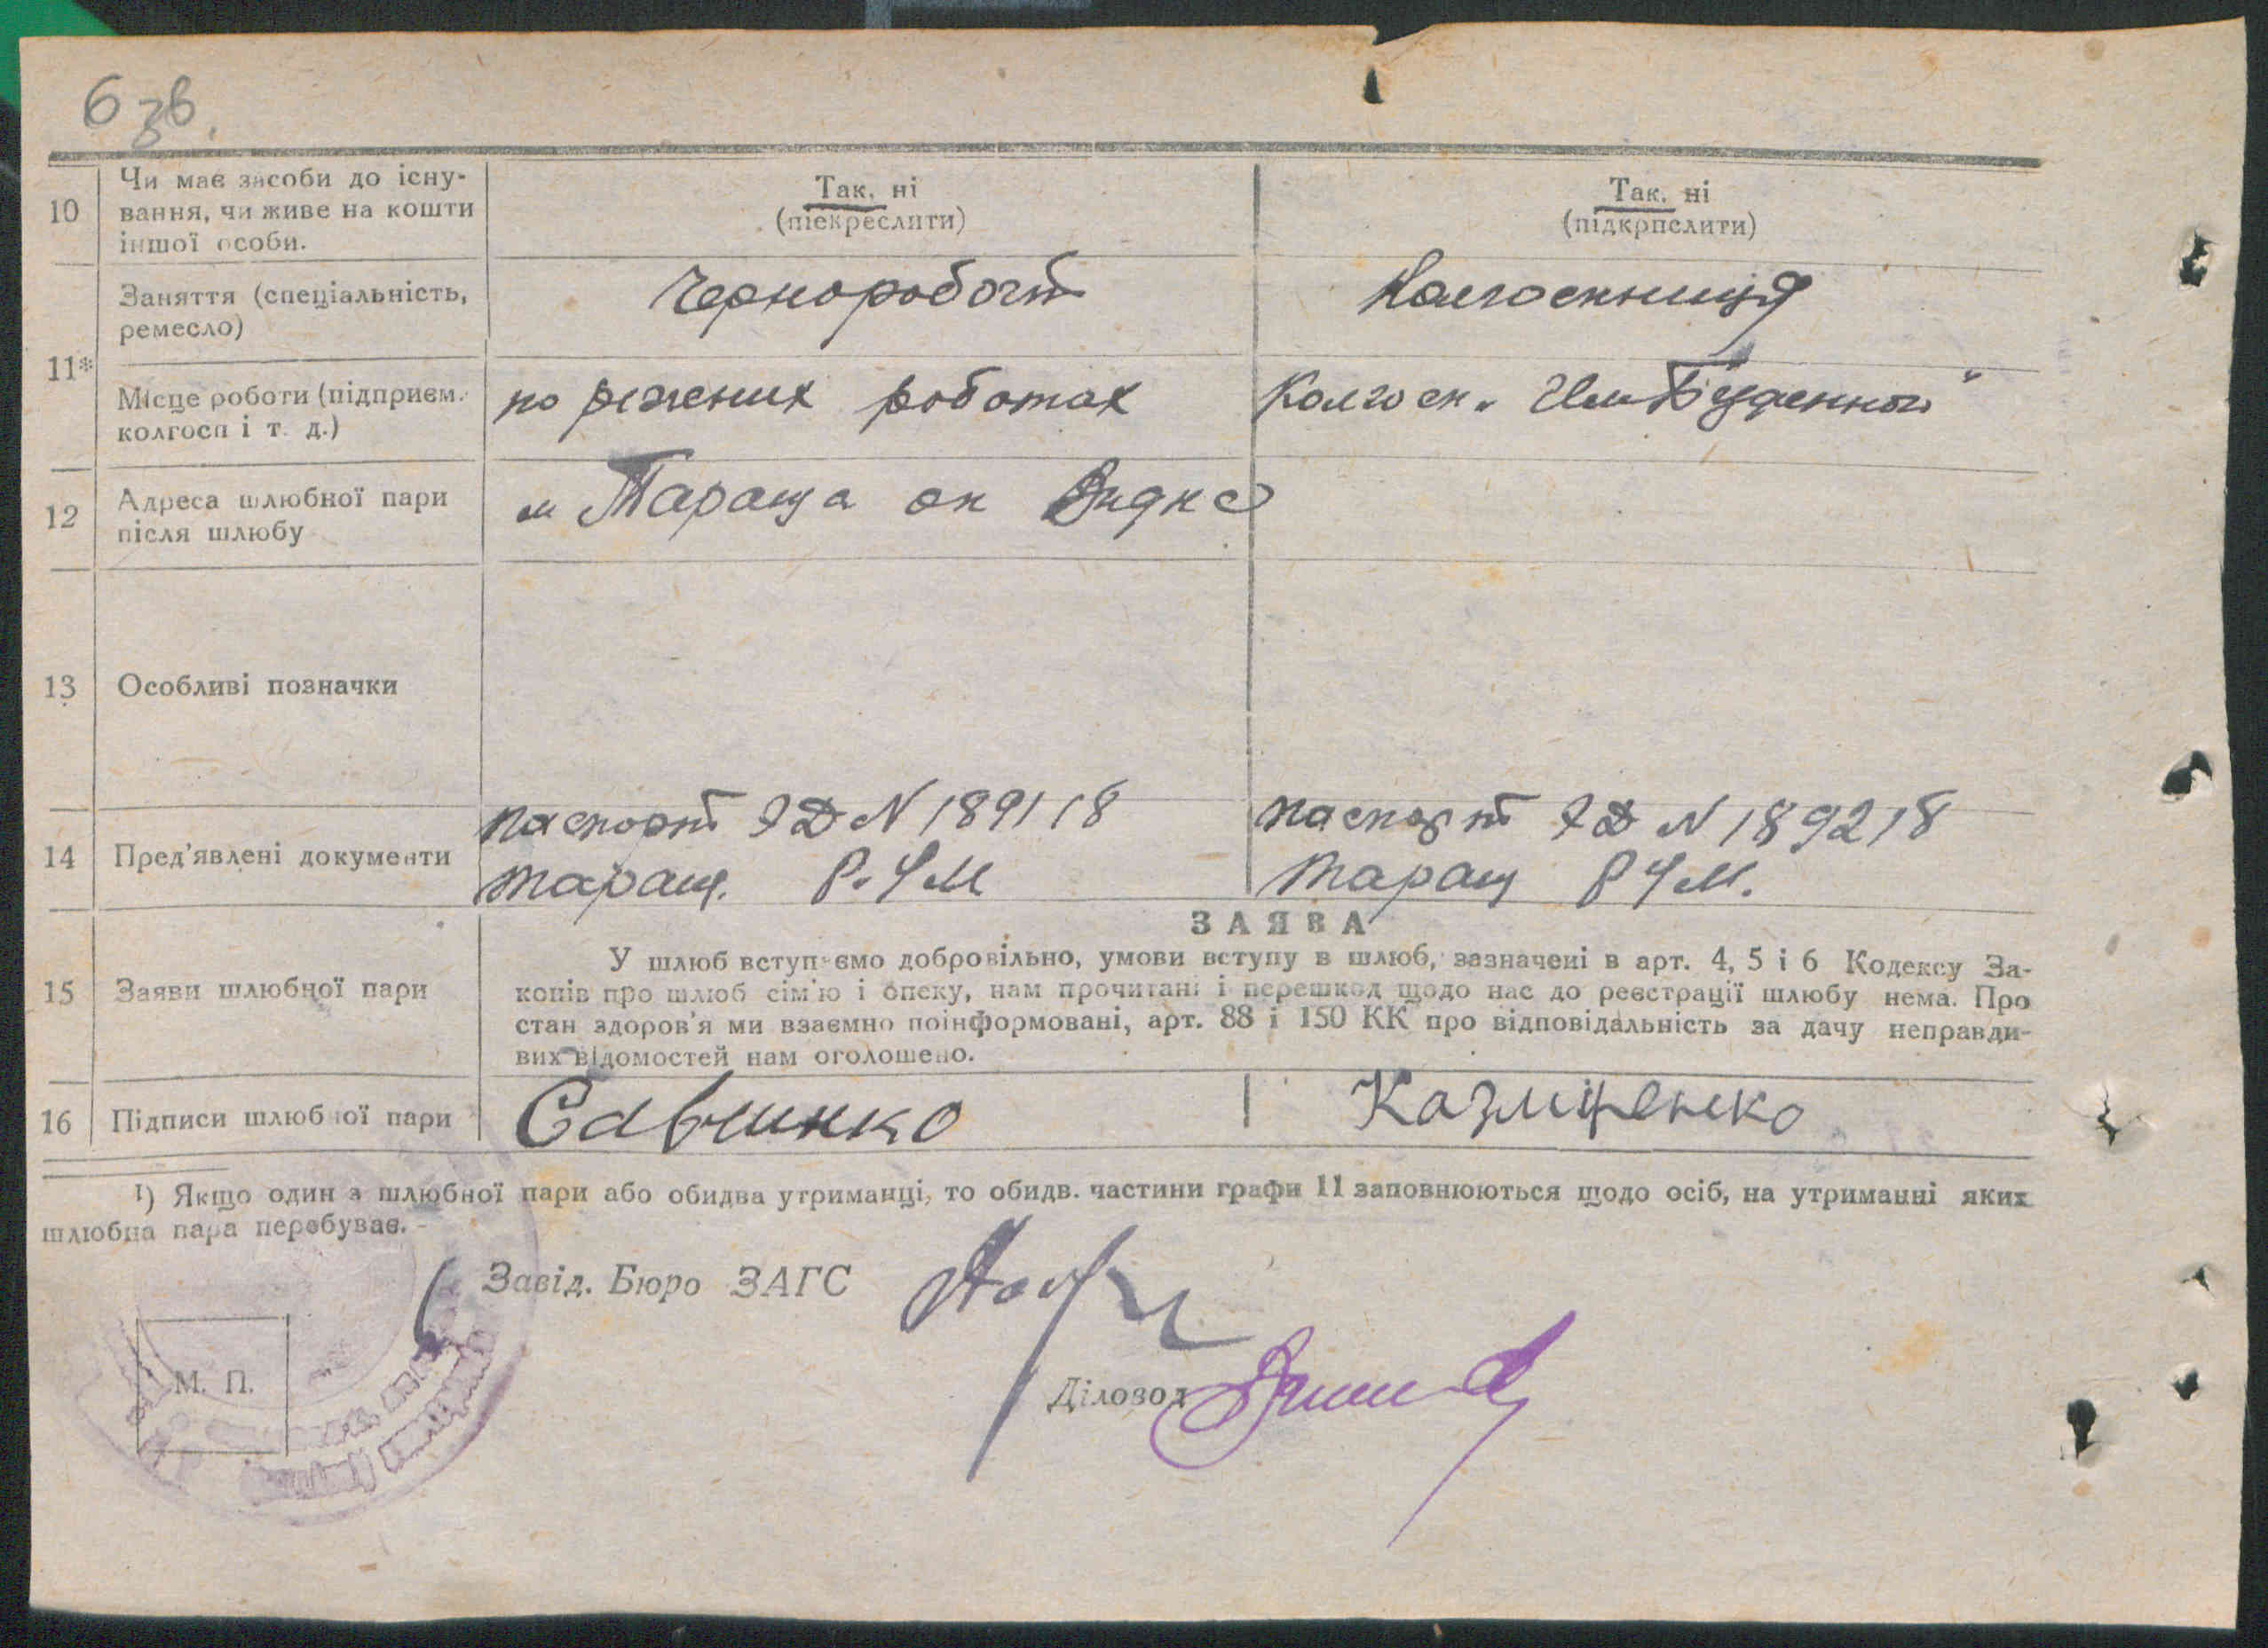 6 зв.
10
Чи має засоби до існу-
вання, чи живе на кошти
іншої особи.
Так, ні
(піекреслити)
Так, ні
(підкрпслити)
11*
Заняття (спеціальність,
ремесло)
Чернороботі
Колгоспниця
Місце роботи (підприєм.
колгосп і т. д.)
по режених роботах
Колгосп. "Им Буденного"
12
Адреса шлюбної пари
після шлюбу
м Тараща ок
13
Особливі позначки
14
Пред'явлені документи
паспорт ЯД N 189118
Таращ. Р.УМ
паспорт ЯД N 189218
Таращ РУМ.
15
Заяви шлюбної пари
ЗАЯВА
У шлюб вступаємо добровільно, умови вступу в шлюб, зазначені в арт. 4, 5 і 6 Кодексу За-
конів про шлюб сім'ю і опеку, нам прочитані і перешкод щодо нас до реєстрації шлюбу нема. Про
стан здоров'я ми взаємно поінформовані, арт. 88 і 150 КК про відповідальність за дачу неправди-
вих відомостей нам оголошено.
16
Підписи шлюбної пари
Савшинко
Казмиренко
1) Якщо один з шлюбної пари або обидва утриманці, то обидв. частини графи 11 заповнюються щодо осіб, на утриманні яких
шлюбна пара перебуває.
Завід. Бюро ЗАГС
М. П.
Діловод